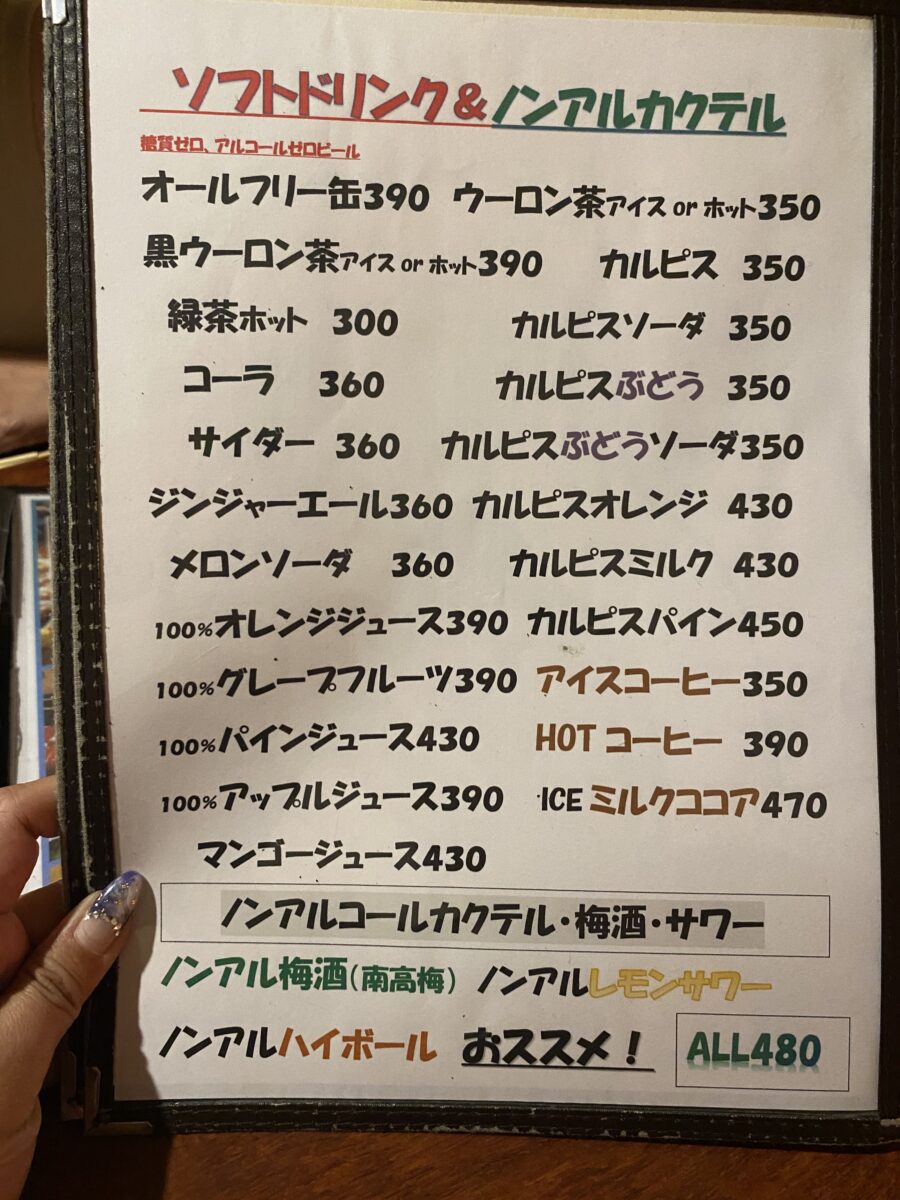 ソフトドリンク&ノンアルカクテル
糖質ゼロ、アルコールゼロビール
オールフリー缶390 ウーロン茶アイス or ホット350
黒ウーロン茶アイス or ホット390 カルピス 350
緑茶ホット 300 カルピスソーダ 350
コーラ 360 カルピスぶどう 350
サイダー 360 カルピスぶどうソーダ350
ジンジャーエール360 カルピスオレンジ 430
メロンソーダ 360 カルピスミルク 430
100%オレンジジュース390 カルピスパイン450
100%グレープフルーツ390 アイスコーヒー350
100%パインジュース430 HOT コーヒー 390
100%アップルジュース390 ICE ミルクココア470
マンゴージュース430
ノンアルコールカクテル・梅酒・サワー
ノンアル梅酒(南高梅) ノンアルレモンサワー
ノンアルハイボール おススメ! ALL480